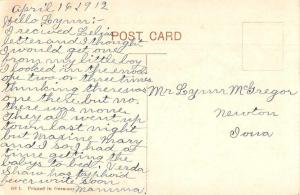 April 16 1912
Hello Lynn:-
I received Lelja
letter and I thought
I would get one
from my little boy
I looked in the envelope
one two or three times
thinking there was
one there but no.
there was none
They all went up
town last night
but Maxine Mary
and I so I had a
time getting the
babys to bed. Verda
Shaw has typhoid
fever write soon
Mamma.
POST CARD
Mr Lynn McGregor
Newton
Iowa
Printed in Germany